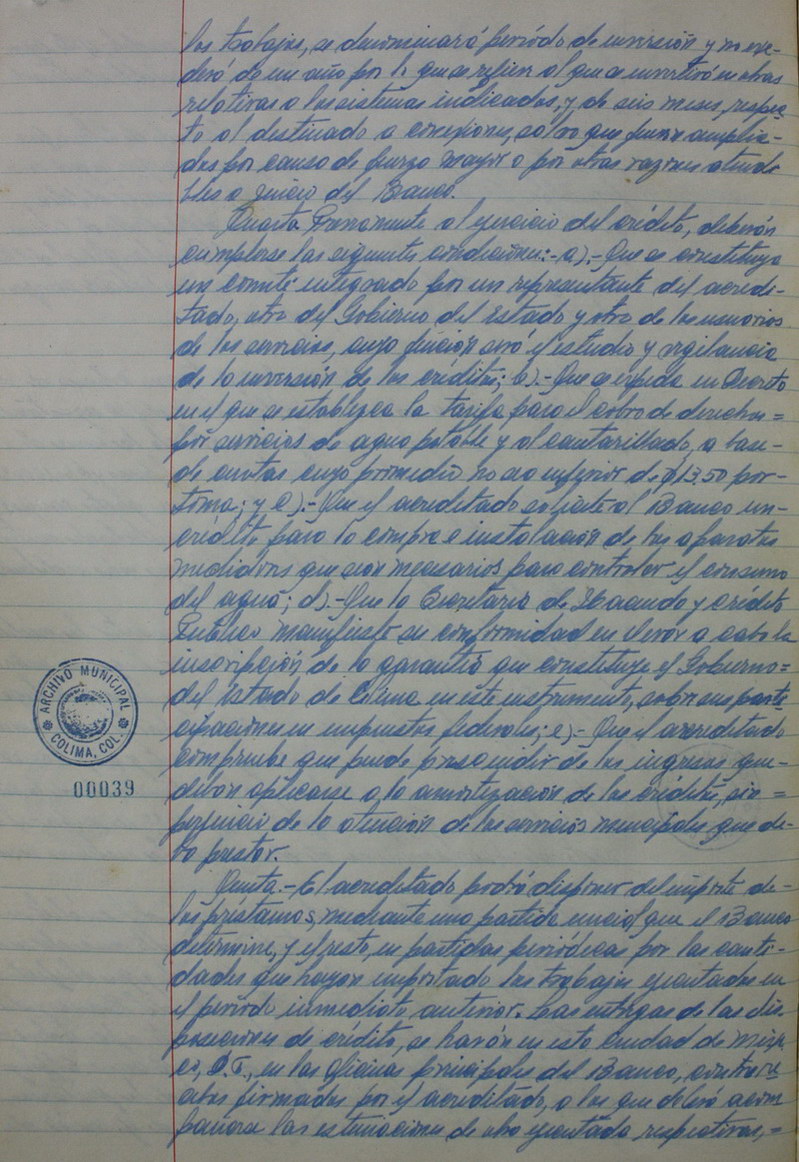 los trabajos, se denominará período de inversión y no exce-
derá de un año por lo que se refiere al que se invertirá en obras
relativas a los sistemas indicados, y de seis meses, respec
to al destinado a conexiones, salvo que fueren amplia-
dos por causa de fuerza mayor o por otras razones atendi
bles a juicio del Banco.
Cuarta Previamente al ejercicio del crédito, deberán
cumplirse las siguientes condiciones:- a).- Que se constituya
un comité integrado por un representante del acredi-
tado, otro del Gobierno del Estado y otro de los usuarios
de los servicios, cuya función será el estudio y vigilancia
de la inversión de los créditos; b).- Que se expida un Decreto
en el que se establezca la tarifa para el cobro de derechos=
por servicios de agua potable y alcantarillado, a base-
de cuotas cuyo promedio no sea inferior de $13.50 por-
toma; y c).- Que el acreditado solicite al Banco un-
crédito para la compra e instalación de los aparatos
medidores que sean necesarios para controlar el consumo
del agua; d).- Que la Secretaría de Hacienda y Crédito
Público manifieste su conformidad en llevar a cabo la
inscripción de la garantía que constituye el Gobierno=
del Estado de Colima en este instrumento, sobre sus parti
cipaciones en impuestos federales; e).- Que el acreditado
compruebe que puede prescindir de los ingresos que-
deban aplicarse a la amortización de los créditos, sin =
perjuicio de la atención de los servicios municipales que de-
ba prestar.
Quinta.- El acreditado podrá disponer del importe de-
los préstamos, mediante una partida inicial que el Banco
determine, y el resto, en partidas periódicas por las canti-
dades que hayan importado los trabajos ejecutados en
el período inmediato anterior. Las entregas de las dis
posiciones de crédito, se harán en esta ciudad de Méxi
co, D.F., en las Oficinas principales del Banco, contra re
cibos firmados por el acreditado, a los que deberá acom
pañarse las estimaciones de obra ejecutada respectivas,=
ARCHIVO MUNICIPAL
COLIMA, COL.
00039